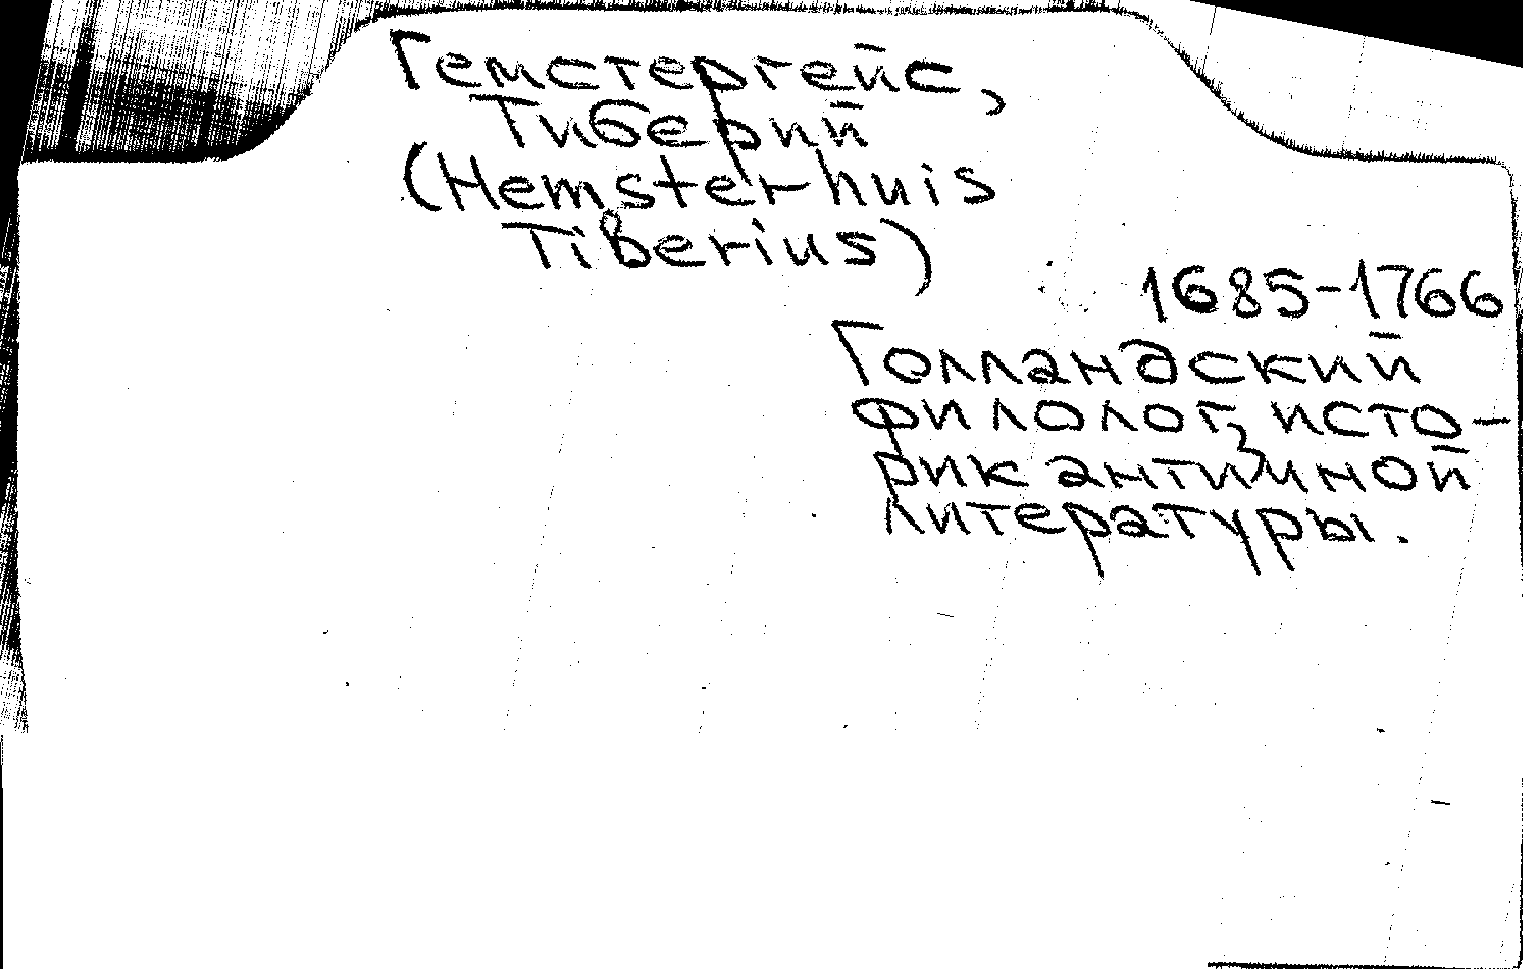 Гемстергейс,
Тиберий
(Hemsterhuis
Tiberius)
1685-1766
Голландский
филолог, исто-
рик античной
литературы.